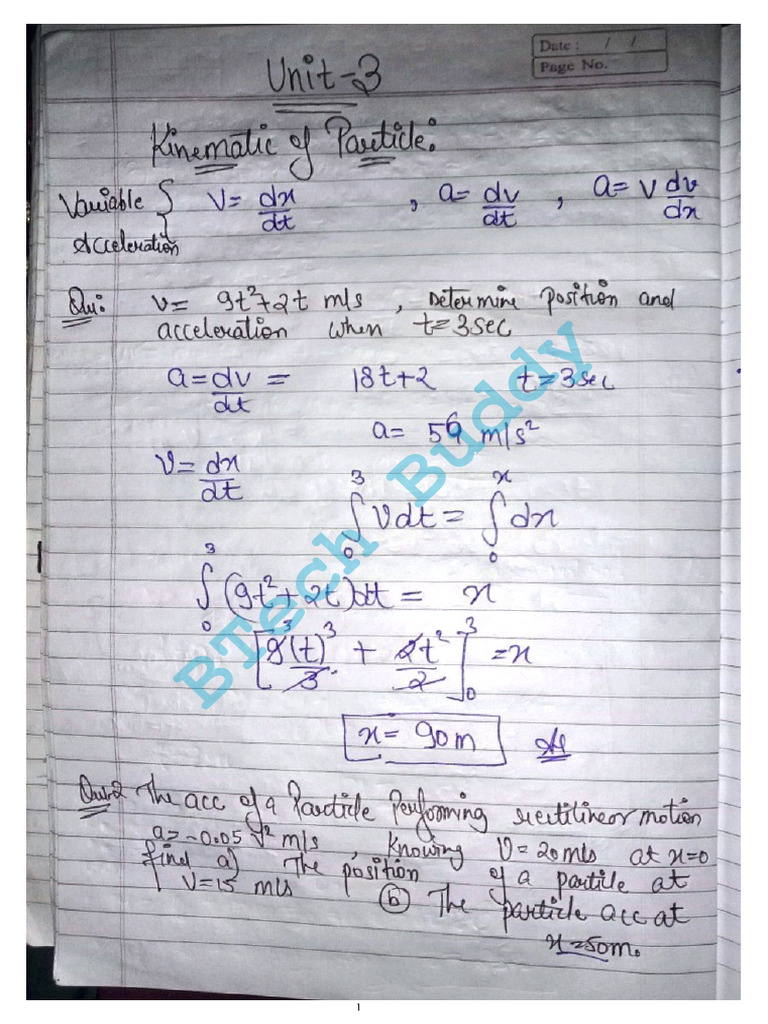 Date : / /
Page No.
Unit-3
Kinematic of Particle:
Variable { V = dx/dt , a = dv/dt , a = v dv/dx
Acceleration
Qu: v = 9t²+2t m/s , Determine position and
acceleration when t=3sec
a = dv/dt = 18t+2 t=3sec
a = 56 m/s²
V = dx/dt
∫₀³ Vdt = ∫₀ˣ dx
∫₀³ (9t²+2t)dt = x
[9³(t)³/3 + 2t²/2]₀³ = x
x = 90m
Qu:2 The acc of a Particle Performing rectilinear motion
a=-0.05 V² m/s , Knowing V=20m/s at x=0
find a) The position of a partile at
V=15 m/s (b) The particle acc at
x=50m.
BTech Buddy
1